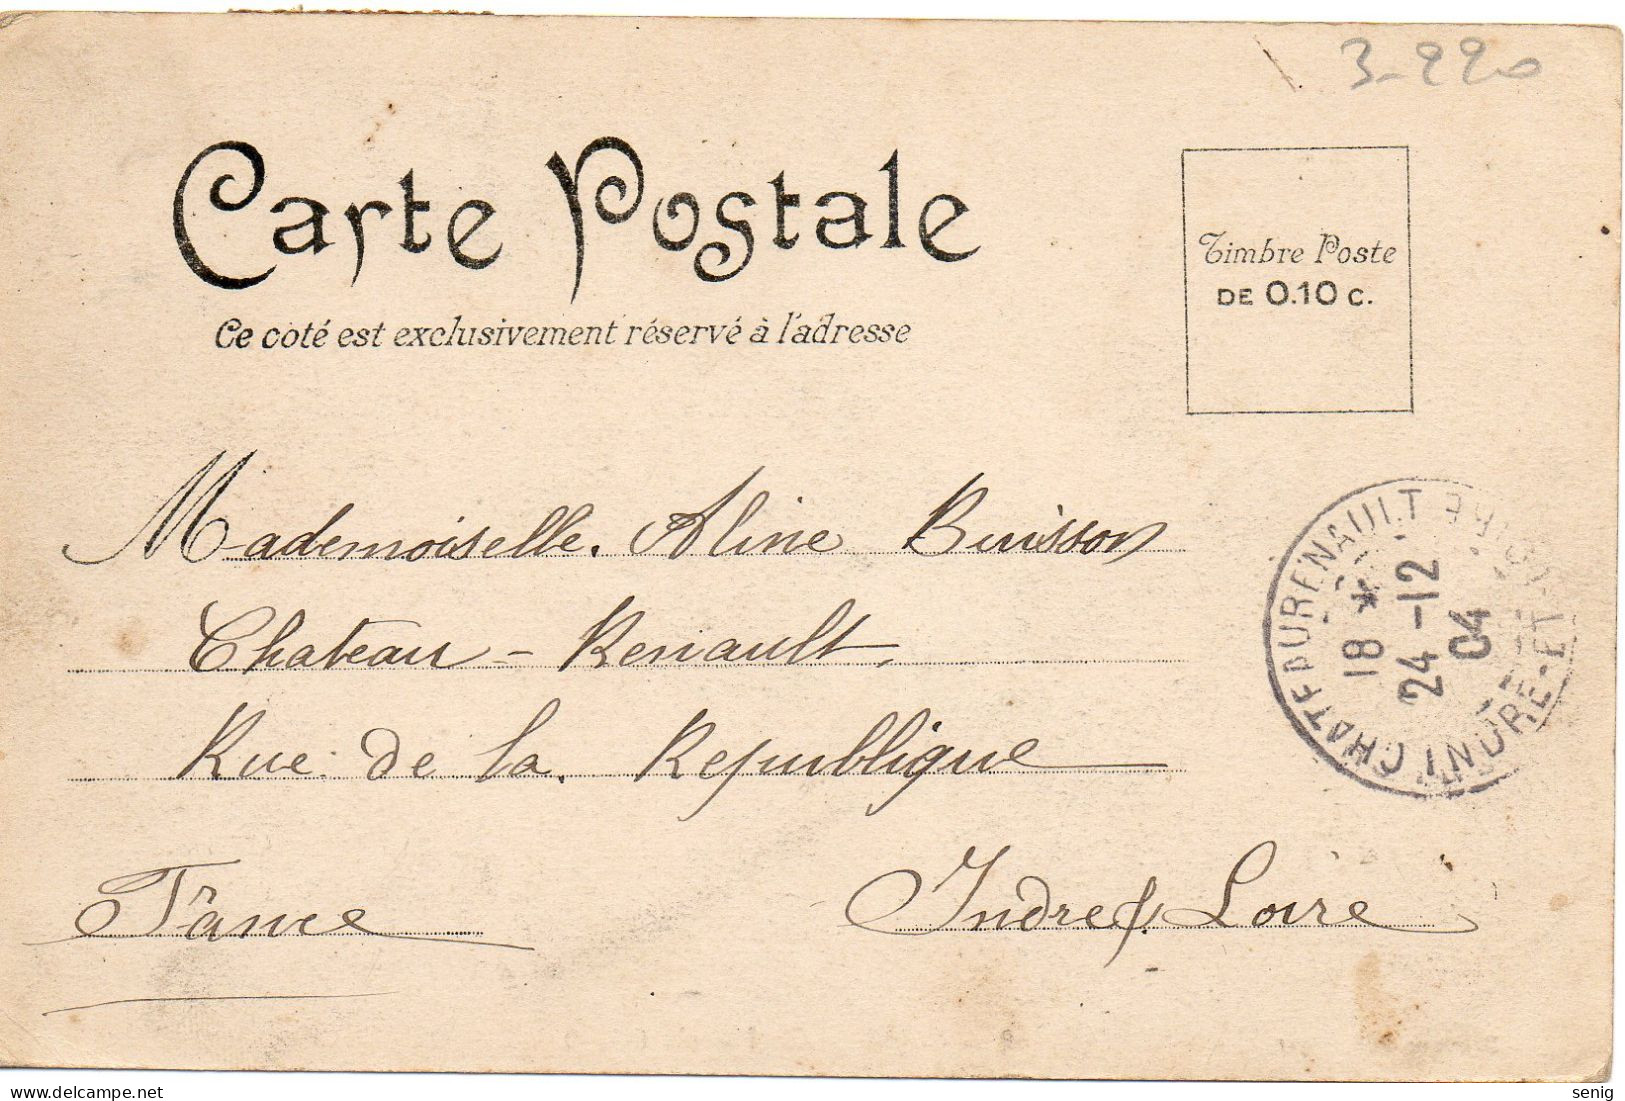 3-220
Carte Postale
Ce coté est exclusivement réservé à l'adresse
Timbre Poste
DE 0.10 C.
Mademoiselle. Aline Buisson
Chateau - Renault.
Rue de la République
France
Indre &. Loire
CHATEAURENAULT
18 *
24 -12
04
INDRE-ET-LOIRE
senig